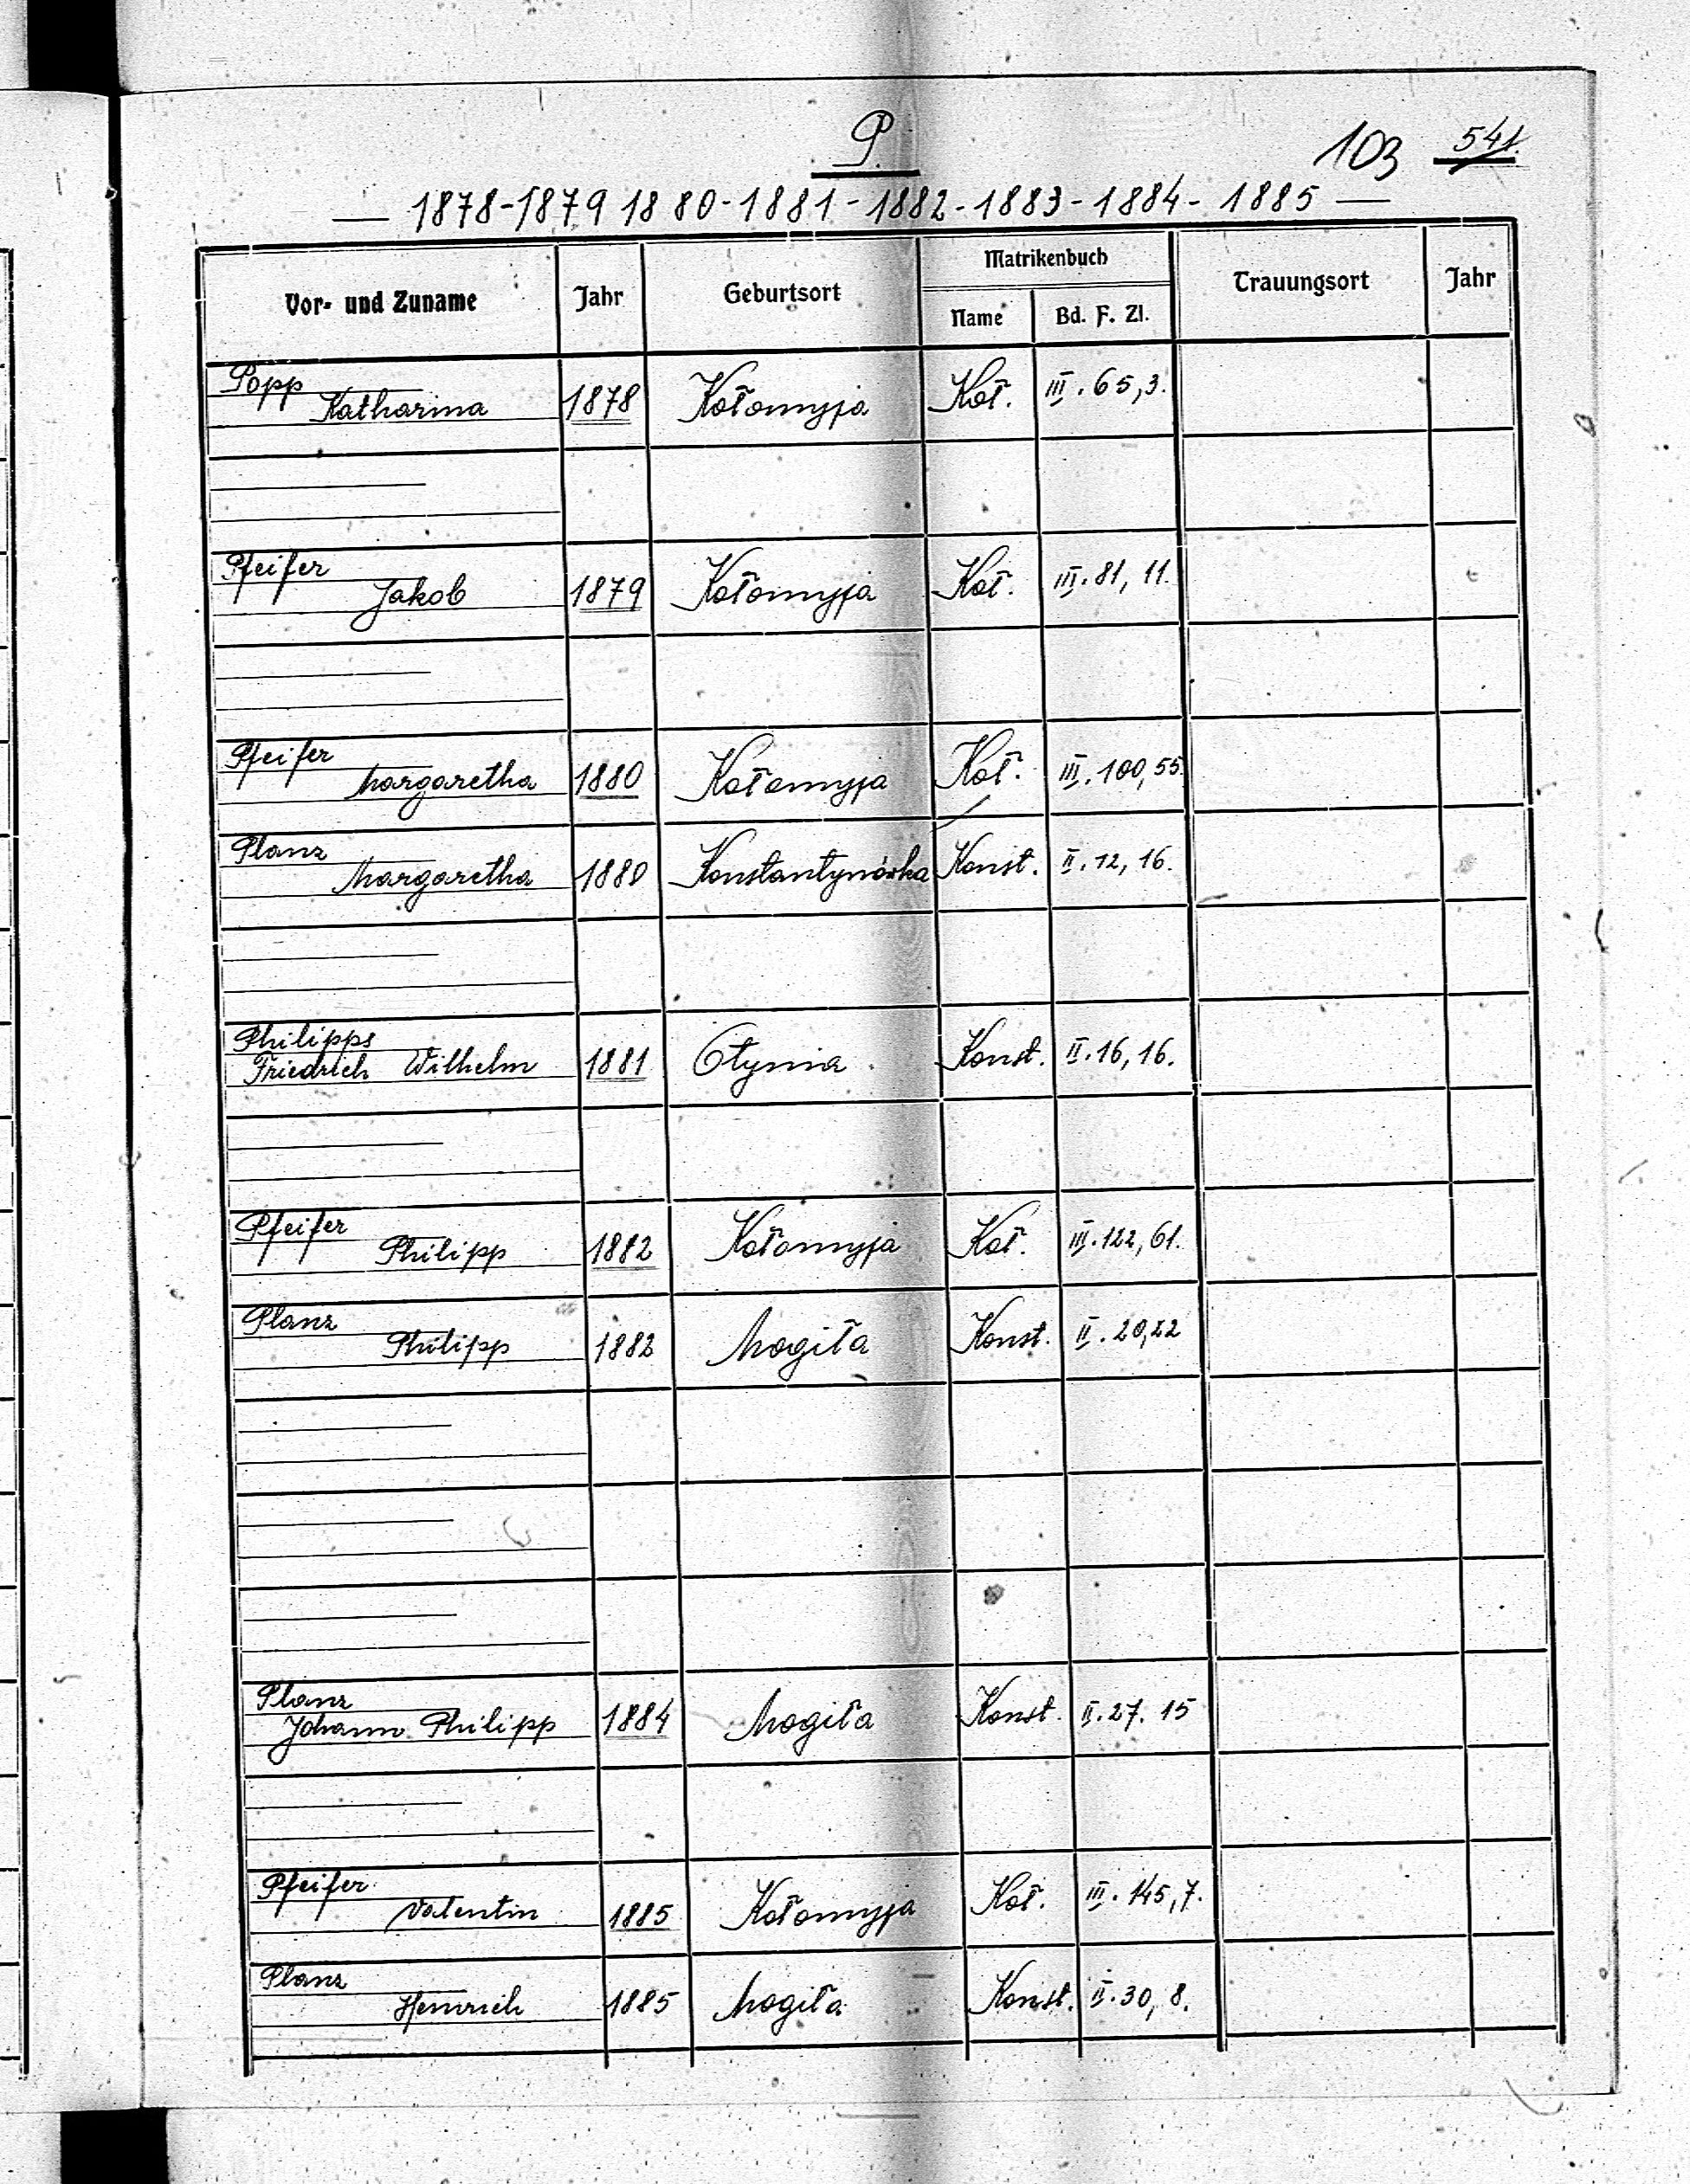 P.
103 541.
— 1878-1879 1880-1881-1882-1883-1884-1885 —
Vor- und Zuname Jahr Geburtsort Matrikenbuch Trauungsort Jahr
Name Bd. F. Zl.
Popp
Katharina 1878 Kołomyja Koł. III. 65,3.
Pfeifer
Jakob 1879 Kołomyja Koł. III. 81, 11.
Pfeifer
Margaretha 1880 Kołomyja Koł. III. 100,55.
Planz
Margaretha 1880 Konstantynówka Konst. II. 12, 16.
Philipps
Friedrich Wilhelm 1881 Otynia Konst. II. 16, 16.
Pfeifer
Philipp 1882 Kołomyja Koł. III. 122, 61.
Planz
Philipp 1882 Mogiła Konst. II. 20,22
Planz
Johann Philipp 1884 Mogiła Konst. II. 27. 15
Pfeifer
Valentin 1885 Kołomyja Koł. III. 145,7.
Planz
Heinrich 1885 Mogiła Konst. II. 30, 8.